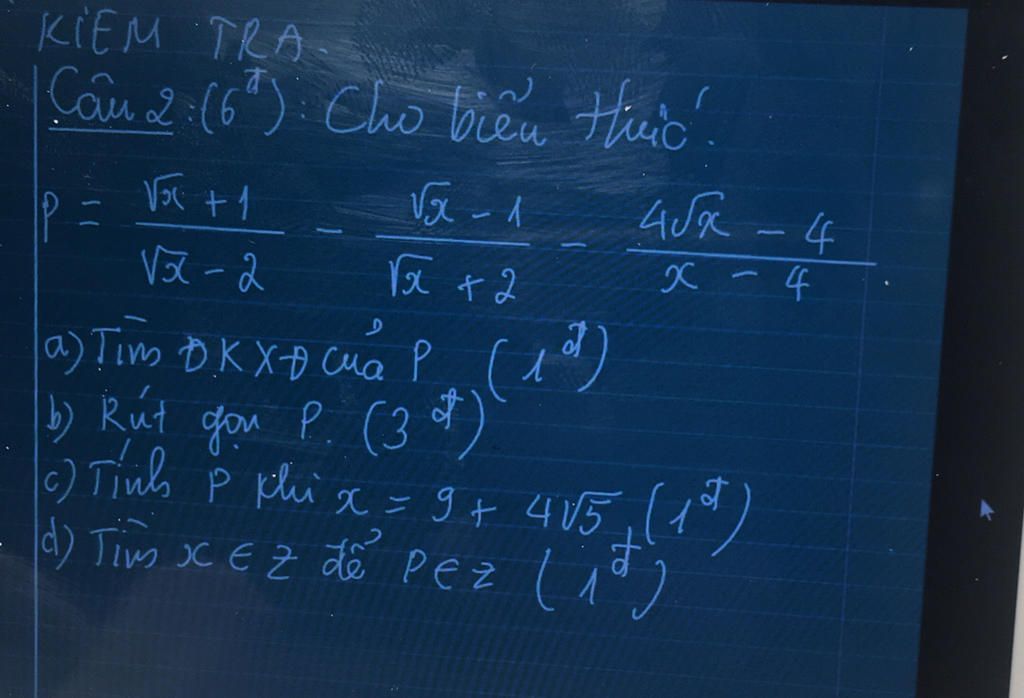 KIỂM TRA.
Câu 2: (6đ): Cho biểu thức.
P = (√x + 1)/(√x - 2) - (√x - 1)/(√x + 2) - (4√x - 4)/(x - 4).
a) Tìm ĐKXĐ của P (1đ)
b) Rút gọn P. (3đ)
c) Tính P khi x = 9 + 4√5. (1đ)
d) Tìm x ∈ Z để P ∈ Z (1đ)